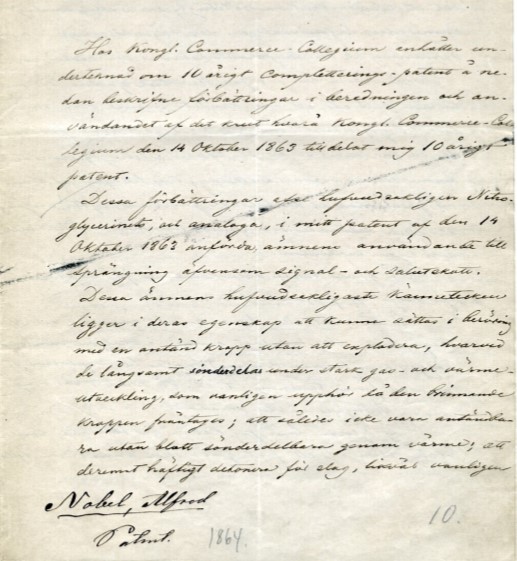 Hos Kongl. Commerce-Collegium anhåller un-
dertecknad om 10 årigt Completterings-patent å ne-
dan beskrifne förbättringar i beredningen och an-
vändandet af det krut hvarå Kongl. Commerce-Col-
legium den 14 Oktober 1863 tilldelat mig 10 årigt
patent.
Dessa förbättringar afse hufvudsakligen Nitro-
glycerinets, och analoga, i mitt patent af den 14
Oktober 1863 anförda, ämnens användande till
sprängning äfvensom signal- och salutskott.
Dessa ämnens hufvudsakligaste kännetecken
ligger i deras egenskap att kunna sättas i beröring
med en antänd kropp utan att explodera, hvarvid
de långsamt sönderdelas under stark gas- och värme-
utveckling, som vanligen upphör då den brinnande
kroppen fråntages; att således icke vara antändba-
ra utan blott sönderdelbara genom värme; att
deremot häftigt detonera för slag, likväl vanligen
Nobel, Alfred
Patent. 1864.
10.